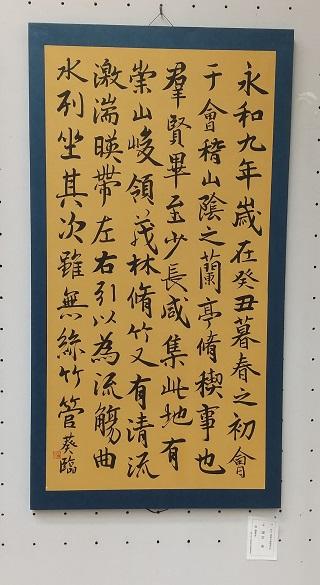 永和九年歳在癸丑暮春之初會
于會稽山陰之蘭亭脩禊事也
羣賢畢至少長咸集此地有
崇山峻領茂林脩竹又有清流
激湍暎帶左右引以為流觴曲
水列坐其次雖無絲竹管 葵臨